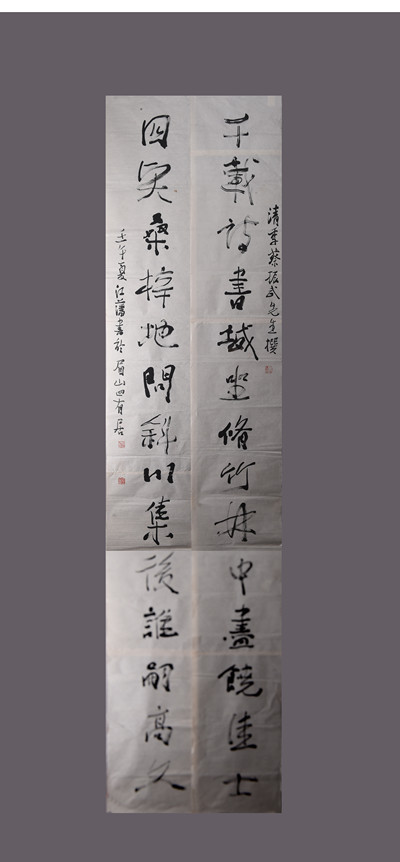 千載詩書城坐脩竹林中盡饒佳士
清季蔡振武先生撰
四賢桑梓地問斜川集後誰嗣高文
壬午夏江藩書於眉山四有居